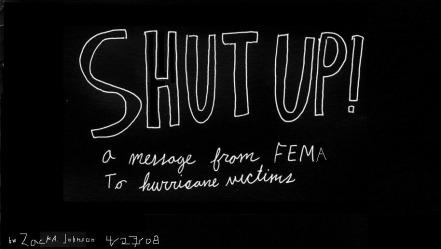 SHUT UP!
a message from FEMA
To hurricane victims
by Zack A. Johnson 4/27/08